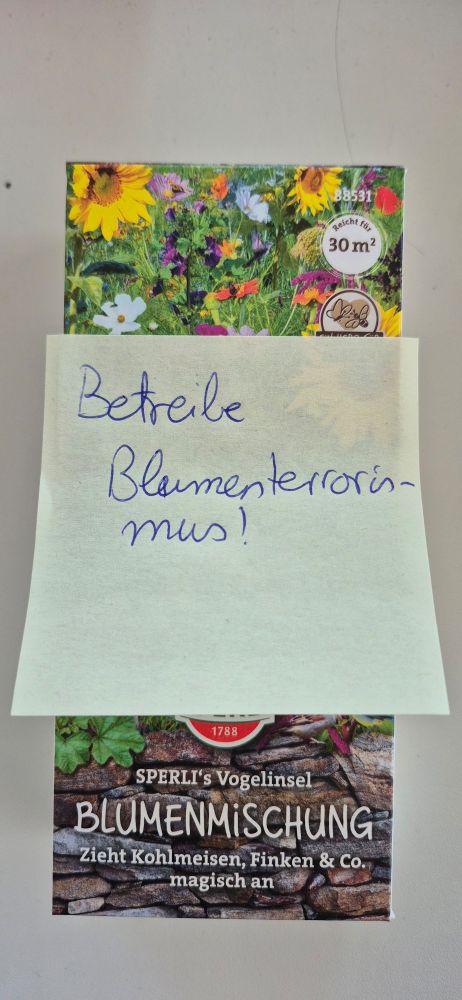 88531
Reicht für
30 m²
Betreibe
Blumenterroris-
mus!
1788
SPERLI's Vogelinsel
BLUMENMiSCHUNG
Zieht Kohlmeisen, Finken & Co.
magisch an